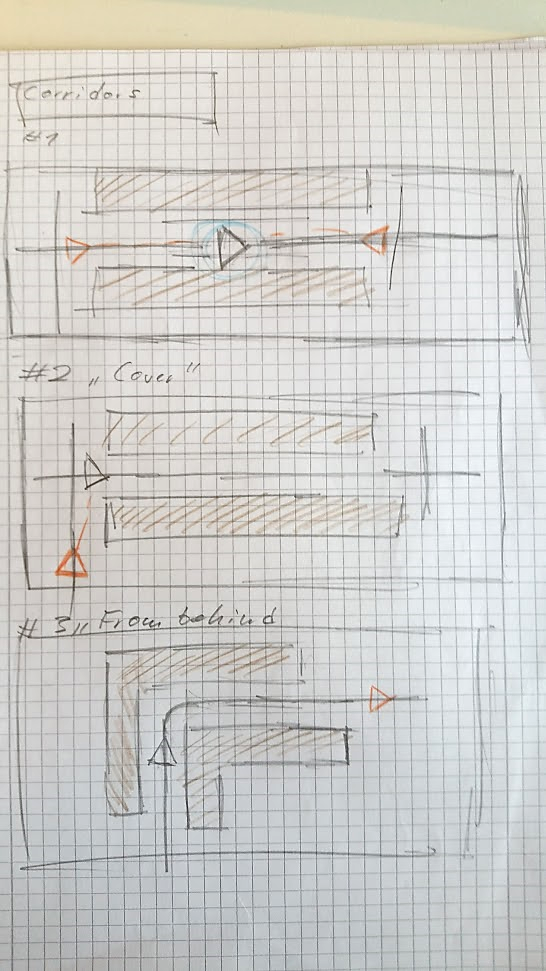 Corridors
#1
#2 „Cover"
# 3 „From behind